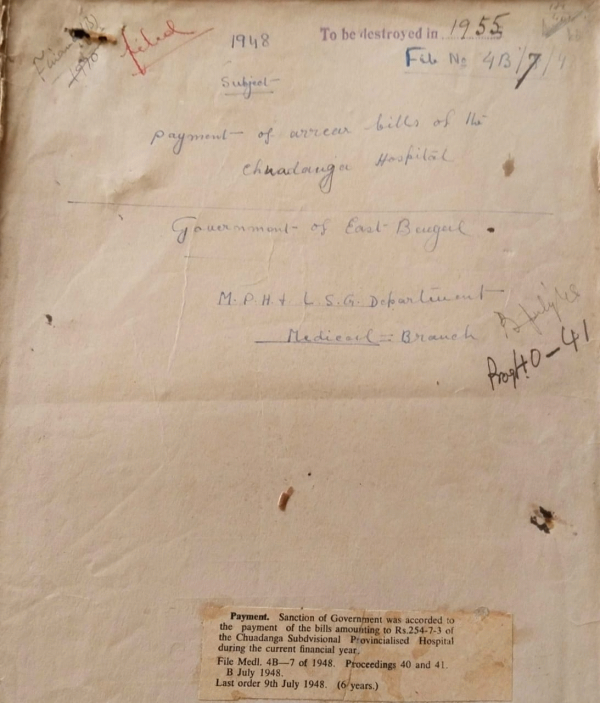 To be destroyed in 1955
filed
1948
File No 4B/7/4
Subject-
payment of arrear bills of the
Chuadanga Hospital
Government of East Bengal
M.P.H. & L.S.G. Department
Medical Branch
B July 48
Progs 40-41
Payment. Sanction of Government was accorded to
the payment of the bills amounting to Rs.254-7-3 of
the Chuadanga Subdvisional Provincialised Hospital
during the current financial year.
File Medl. 4B—7 of 1948. Proceedings 40 and 41.
B July 1948.
Last order 9th July 1948. (6 years.)